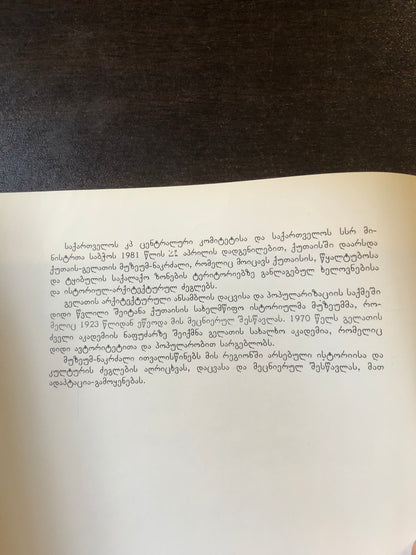 საქართველოს კპ ცენტრალური კომიტეტისა და საქართველოს სსრ მი-
ნისტრთა საბჭოს 1981 წლის 21 აპრილის დადგენილებით, ქუთაისში დაარსდა
ქუთაის-გელათის მუზეუმ-ნაკრძალი, რომელიც მოიცავს ქუთაისის, წყალტუბოსა
და ტყიბულის საქალაქო ზონების ტერიტორიებზე განლაგებულ ხელოვნებისა
და ისტორიულ-არქიტექტურულ ძეგლებს.
გელათის არქიტექტურული ანსამბლის დაცვისა და პოპულარიზაციის საქმეში
დიდი წვლილი შეიტანა ქუთაისის სახელმწიფო ისტორიულმა მუზეუმმა, რო-
მელიც 1923 წლიდან ეწეოდა მის მეცნიერულ შესწავლას. 1970 წელს გელათის
ძველი აკადემიის ნაფუძარზე შეიქმნა გელათის სახალხო აკადემია, რომელიც
დიდი ავტორიტეტითა და პოპულარობით სარგებლობს.
მუზეუმ-ნაკრძალი ითვალისწინებს მის რეგიონში არსებული ისტორიისა და
კულტურის ძეგლების აღრიცხვას, დაცვასა და მეცნიერულ შესწავლას, მათ
ადაპტაცია-გამოყენებას.